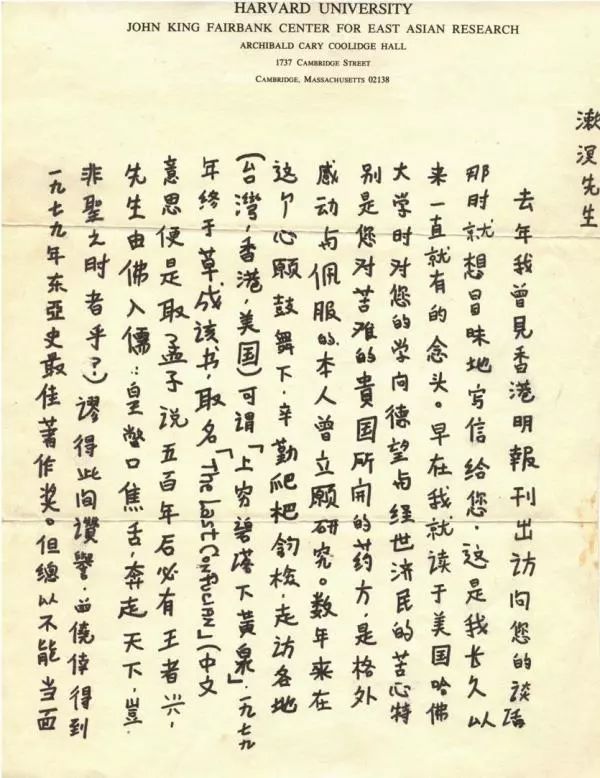 HARVARD UNIVERSITY
JOHN KING FAIRBANK CENTER FOR EAST ASIAN RESEARCH
ARCHIBALD CARY COOLIDGE HALL
1737 CAMBRIDGE STREET
CAMBRIDGE, MASSACHUSETTS 02138
漱溟先生
去年我曾見香港明報刊出访问您的談话
那时就想冒昧地写信给您,这是我长久以
来一直就有的念头。早在我就读于美国哈佛
大学时对您的学问德望与经世济民的苦心特
别是您对苦难的貴国所开的药方,是格外
感动与佩服的,本人曾立願研究。数年来在
这个心願鼓舞下,辛勤爬梳钩检,走访各地
(台灣,香港,美国)可謂「上穷碧落下黃泉」.一九七九
年终于草成该书,取名「The Last Confucian」(中文
意思便是取了孟子说五百年后必有王者兴,
先生由佛入儒:皇	口焦舌,奔走天下,豈
非聖之时者乎?)謬得此间讚譽,而僥倖得到
一九七九年东亞史最佳著作奖。但總以不能当面